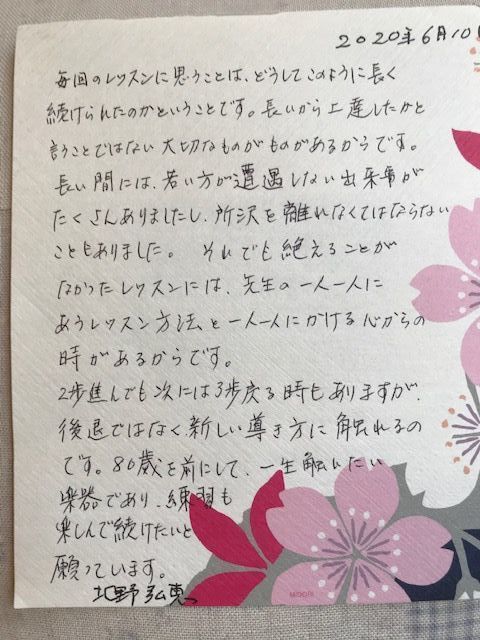 2020年6月10
毎回のレッスンに思うことは、どうしてこのように長く
続けられたのかということです。長いから上達したかと
言うことではない大切なものがものがあるからです。
長い間には、若い方が遭遇しない出来事が
たくさんありましたし、所沢を離れなくてはならない
こともありました。それでも絶えることが
なかったレッスンには、先生の一人一人に
あうレッスン方法と一人一人にかける心からの
時があるからです。
2歩進んでも次には3歩戻る時もありますが、
後退ではなく、新しい導き方に触れるの
です。80歳を前にして、一生触れたい
楽器であり、練習も
楽しんで続けたいと
願っています。
北野弘恵
MIDORI